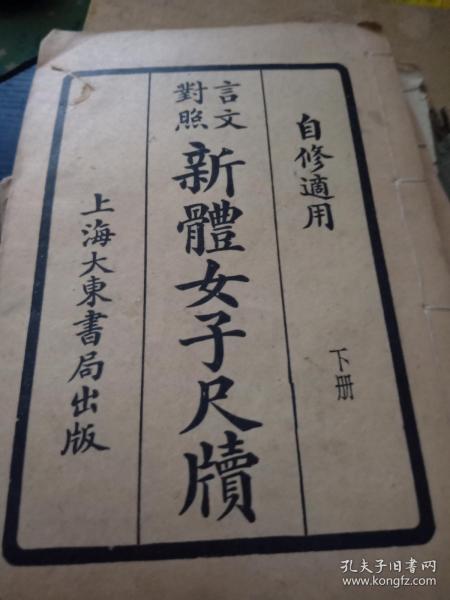 自修適用
下册
言文
對照
新體女子尺牘
上海大東書局出版
孔夫子旧书网
www.kongfz.com